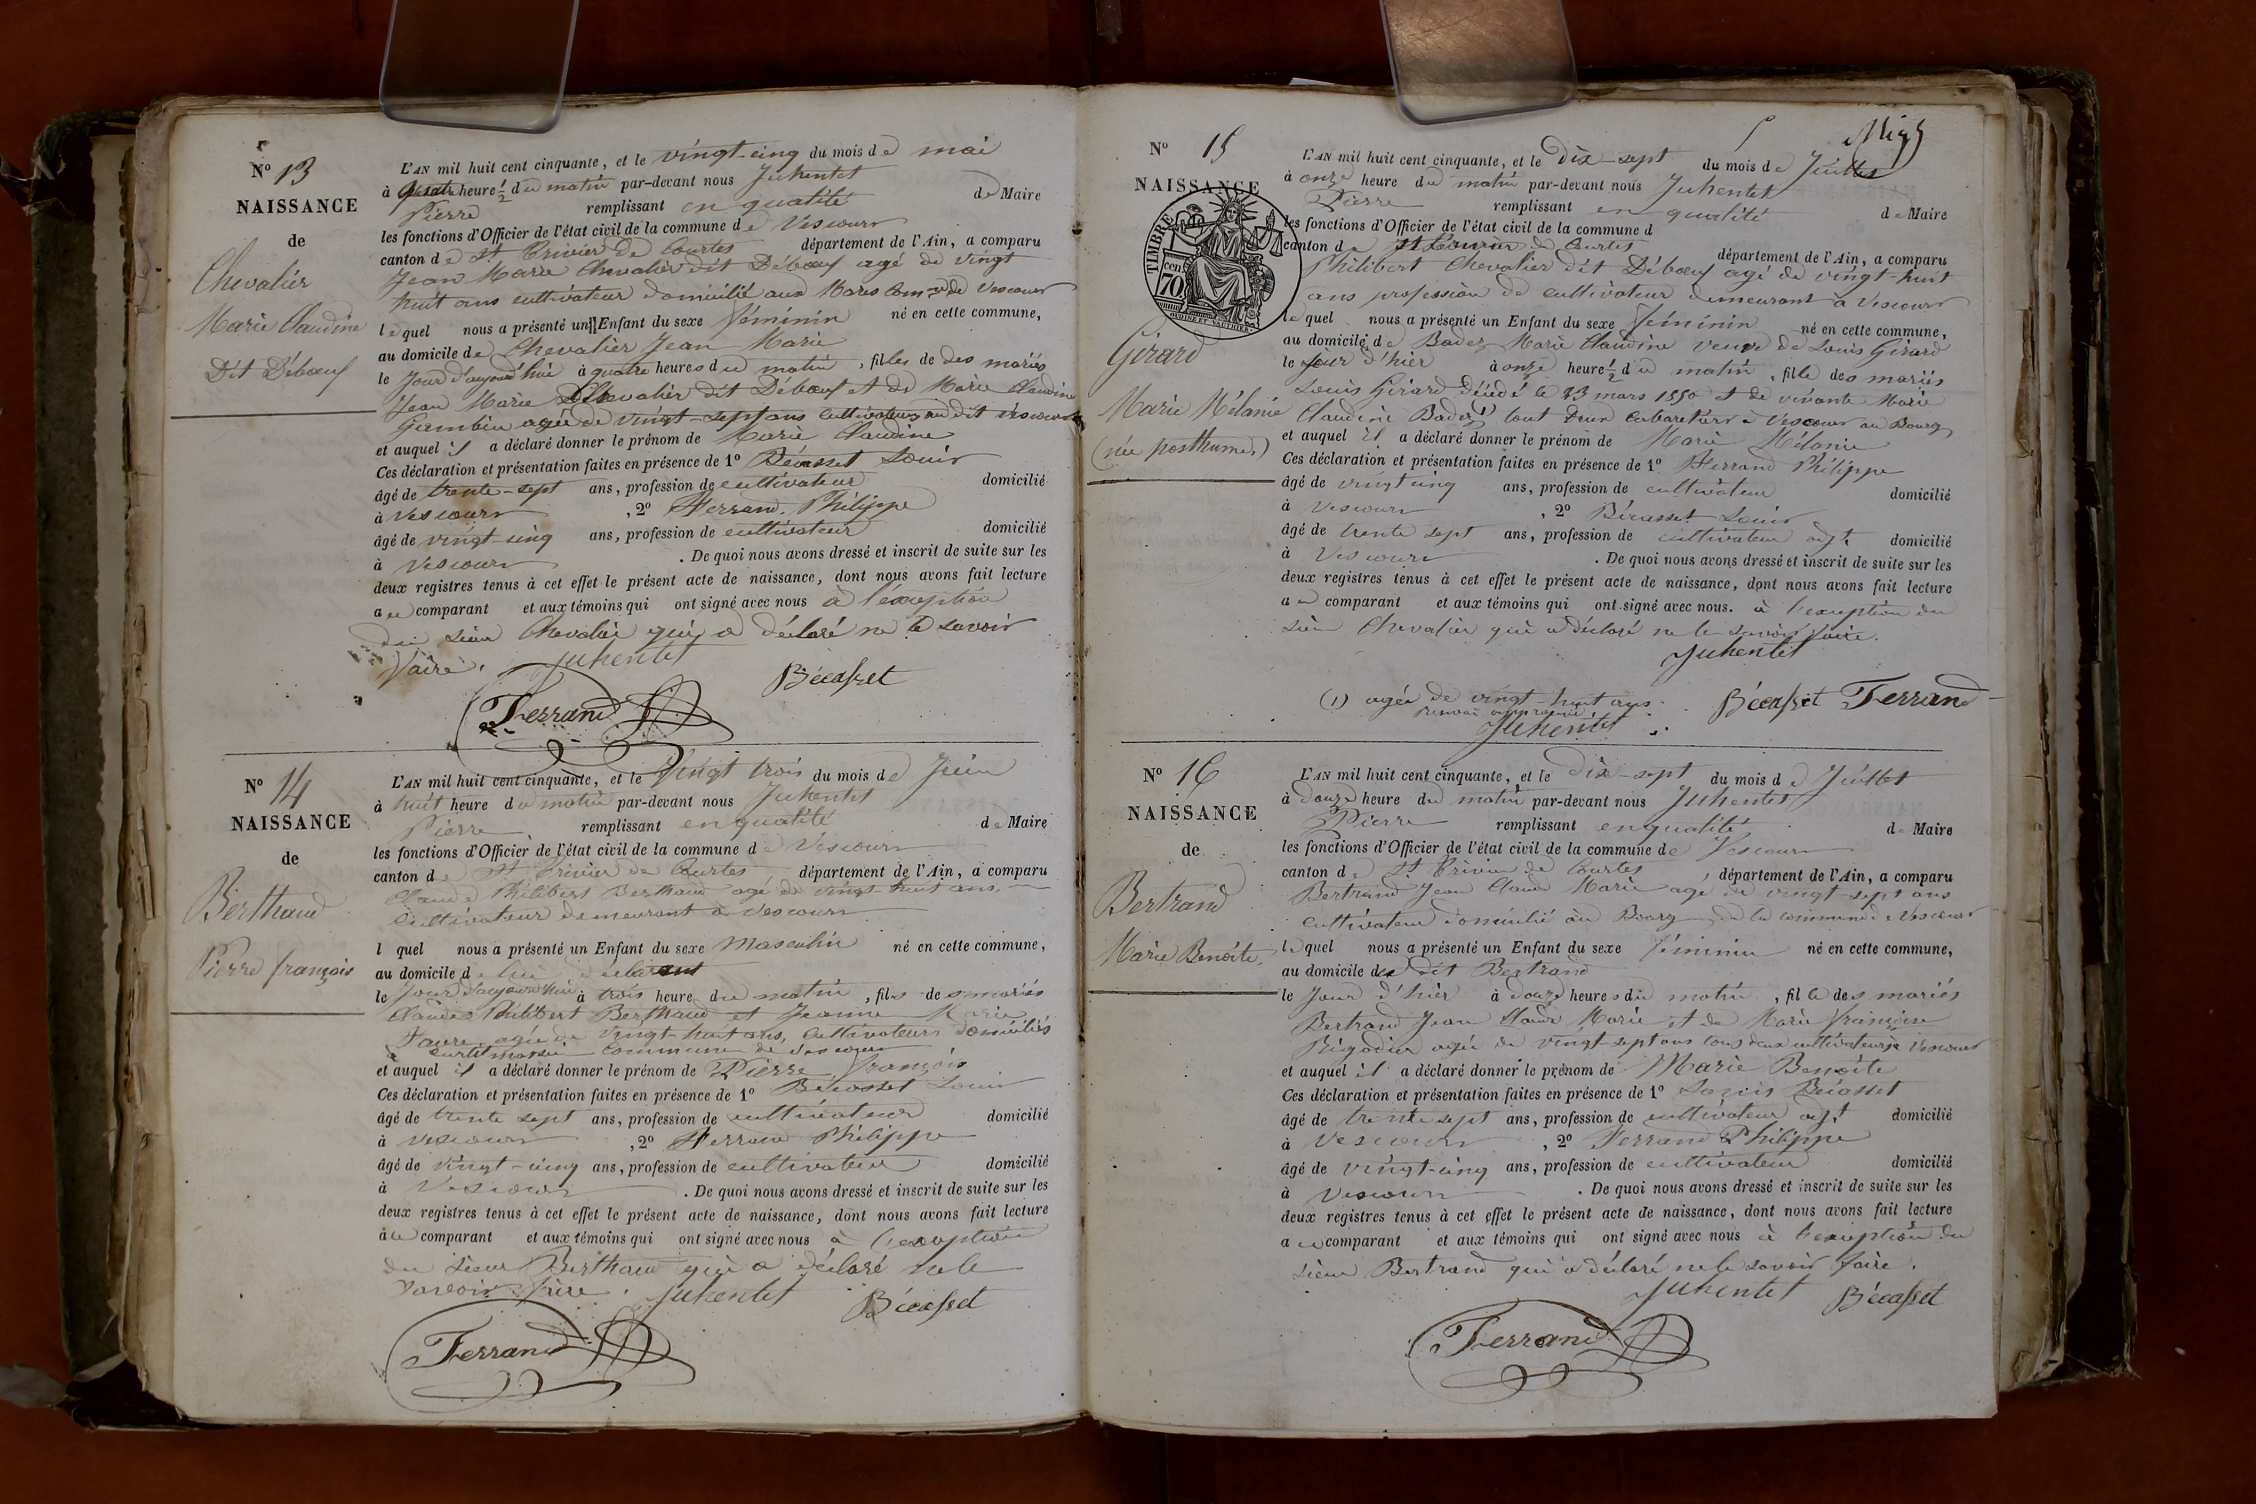 N° 13
NAISSANCE
de
Chevalier
Marie Claudine
Dit Débœuf
L'AN mil huit cent cinquante, et le vingt-cinq du mois de mai
à quatre heure ½ du matin par-devant nous Juhentet
Pierre remplissant en qualité de Maire
les fonctions d'Officier de l'état civil de la commune de Vescours
canton de St Trivier de Courtes département de l'Ain, a comparu
Jean Marie Chevalier dit Débœuf agé de vingt
huit ans cultivateur domicilié aux Mares Comne de Vescours
lequel nous a présenté un Enfant du sexe féminin né en cette commune,
au domicile de Chevalier Jean Marie
le Jour d'aujourd'hui à quatre heures du matin, fille de des mariés
Jean Marie Chevalier dit Débœuf et de Marie Claudine
agée de vingt-sept ans cultivateurs au dit Vescours
et auquel il a déclaré donner le prénom de Marie Claudine
Ces déclaration et présentation faites en présence de 1° Bécasset Louis
âgé de trente-sept ans, profession de cultivateur domicilié
à Vescours, 2° Ferrand Philippe
âgé de vingt-cinq ans, profession de cultivateur domicilié
à Vescours. De quoi nous avons dressé et inscrit de suite sur les
deux registres tenus à cet effet le présent acte de naissance, dont nous avons fait lecture
au comparant et aux témoins qui ont signé avec nous à l'exception
du sieur Chevalier qui a déclaré ne le savoir
faire. Juhentet
Bécasset
Ferrand
N° 14
NAISSANCE
de
Berthaud
Pierre françois
L'AN mil huit cent cinquante, et le Vingt trois du mois de Juin
à huit heure du matin par-devant nous Juhentet
Pierre remplissant en qualité de Maire
les fonctions d'Officier de l'état civil de la commune de Vescours
canton de St Trivier de Courtes département de l'Ain, a comparu
Claude Philibert Berthaud agé de vingt huit ans,
Cultivateur demeurant à Vescours
l quel nous a présenté un Enfant du sexe Masculin né en cette commune,
au domicile de lui déclarant
le Jour d'aujourd'hui à trois heure du matin, fils de s mariés
Claude Philibert Berthaud et Jeanne Marie
Faure agée de vingt-huit ans, cultivateurs domiciliés
à commune de Vescours
et auquel il a déclaré donner le prénom de Pierre François
Ces déclaration et présentation faites en présence de 1° Bécasset Louis
âgé de trente sept ans, profession de cultivateur domicilié
à Vescours, 2° Ferrand Philippe
âgé de vingt-cinq ans, profession de cultivateur domicilié
à Vescours. De quoi nous avons dressé et inscrit de suite sur les
deux registres tenus à cet effet le présent acte de naissance, dont nous avons fait lecture
au comparant et aux témoins qui ont signé avec nous à l'exception
du sieur Berthaud qui a déclaré ne le
savoir faire. Juhentet Bécasset
Ferrand
N° 15
NAISSANCE
TIMBRE
70 cen
Girard
Marie Mélanie
(née posthume)
L'AN mil huit cent cinquante, et le dix-sept du mois de Juillet
à onze heure du matin par-devant nous Juhentet
Pierre remplissant en qualité de Maire
les fonctions d'Officier de l'état civil de la commune d
canton de St Trivier de Courtes département de l'Ain, a comparu
Philibert Chevalier dit Débœuf agé de vingt-huit
ans profession de cultivateur demeurant à Vescours
lequel nous a présenté un Enfant du sexe féminin né en cette commune,
au domicile de Badez Marie Claudine veuve de Louis Girard
le Jour d'hier à onze heure ½ du matin, fille des mariés
Louis Girard décédé le 23 mars 1850 et de vivante Marie
Claudine Badez (1) tout deux cabaretiers à Vescours au Bourg
et auquel il a déclaré donner le prénom de Marie Mélanie
Ces déclaration et présentation faites en présence de 1° Ferrand Philippe
âgé de vingt cinq ans, profession de cultivateur domicilié
à Vescours, 2° Bécasset Louis
âgé de trente sept ans, profession de cultivateur domicilié
à Vescours. De quoi nous avons dressé et inscrit de suite sur les
deux registres tenus à cet effet le présent acte de naissance, dont nous avons fait lecture
au comparant et aux témoins qui ont signé avec nous. à l'exception du
sieur Chevalier qui a déclaré ne le savoir faire.
Juhentet
(1) agée de vingt-huit ans. Bécasset Ferrand
renvoi approuvé
Juhentet
N° 16
NAISSANCE
de
Bertrand
Marie Benoîte
L'AN mil huit cent cinquante, et le dix-sept du mois de Juillet
à douze heure du matin par-devant nous Juhentet
Pierre remplissant en qualité de Maire
les fonctions d'Officier de l'état civil de la commune de Vescours
canton de St Trivier de Courtes département de l'Ain, a comparu
Bertrand Jean Claude Marie agé de vingt-sept ans
cultivateur domicilié au Bourg de la commune de Vescours
lequel nous a présenté un Enfant du sexe féminin né en cette commune,
au domicile du dit Bertrand
le Jour d'hier à douze heures du matin, fille des mariés
Bertrand Jean Claude Marie et de Marie françoise
agée de vingt sept ans tous deux cultivateurs à Vescours
et auquel il a déclaré donner le prénom de Marie Benoîte
Ces déclaration et présentation faites en présence de 1° Louis Bécasset
âgé de trente sept ans, profession de cultivateur domicilié
à Vescours, 2° Ferrand Philippe
âgé de vingt-cinq ans, profession de cultivateur domicilié
à Vescours. De quoi nous avons dressé et inscrit de suite sur les
deux registres tenus à cet effet le présent acte de naissance, dont nous avons fait lecture
au comparant et aux témoins qui ont signé avec nous à l'exception du
sieur Bertrand qui a déclaré ne le savoir faire.
Juhentet Bécasset
Ferrand